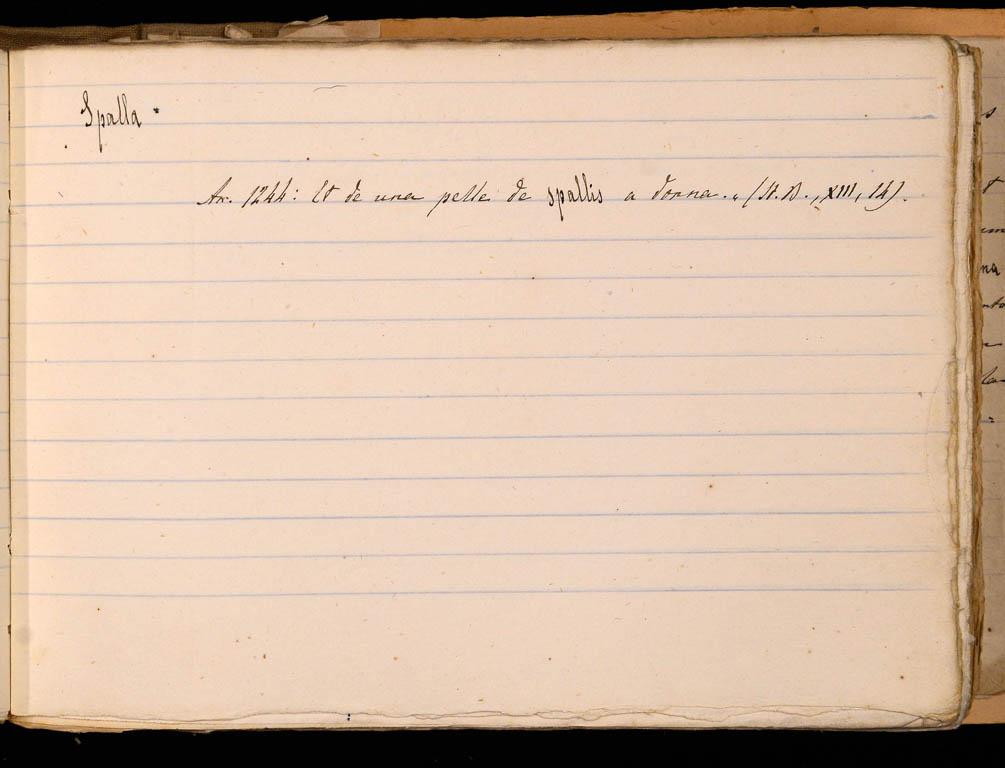 Spalla.
An. 1244: Et de una pelle de spallis a donna. „ (H. B., XIII, 14).
na